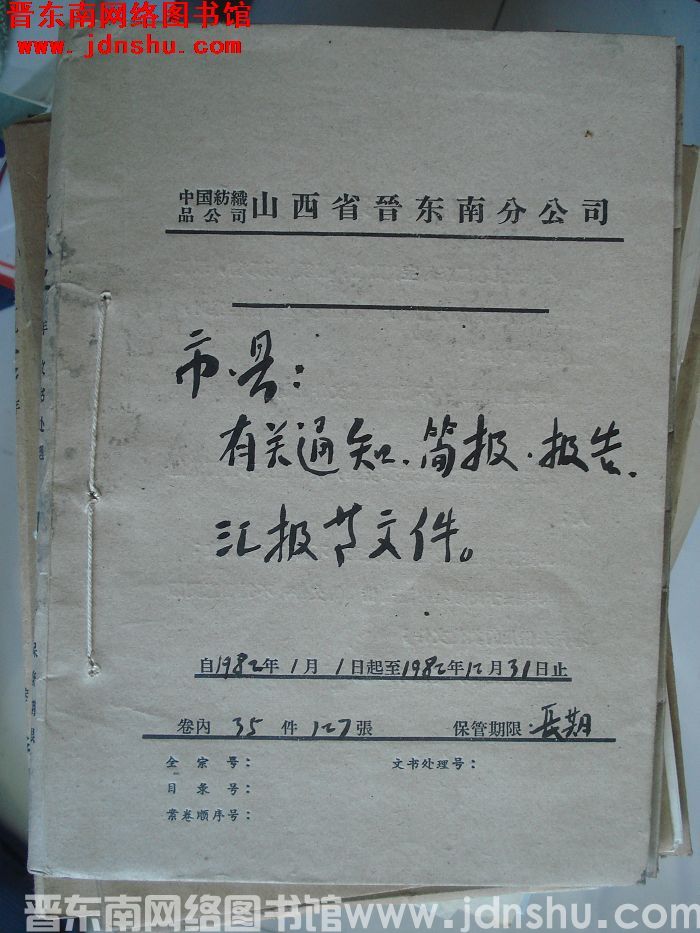 晋东南网络图书馆
www.jdnshu.com
中国紡織品公司 山西省晉东南分公司
市、县：
有关通知、简报、报告、
汇报等文件。
自1982年1月1日起至1982年12月31日止
卷內 35 件 127 張 保管期限：長期
全宗号： 文书处理号：
目录号：
案卷顺序号：
年文书处理
晋东南网络图书馆www.jdnshu.com